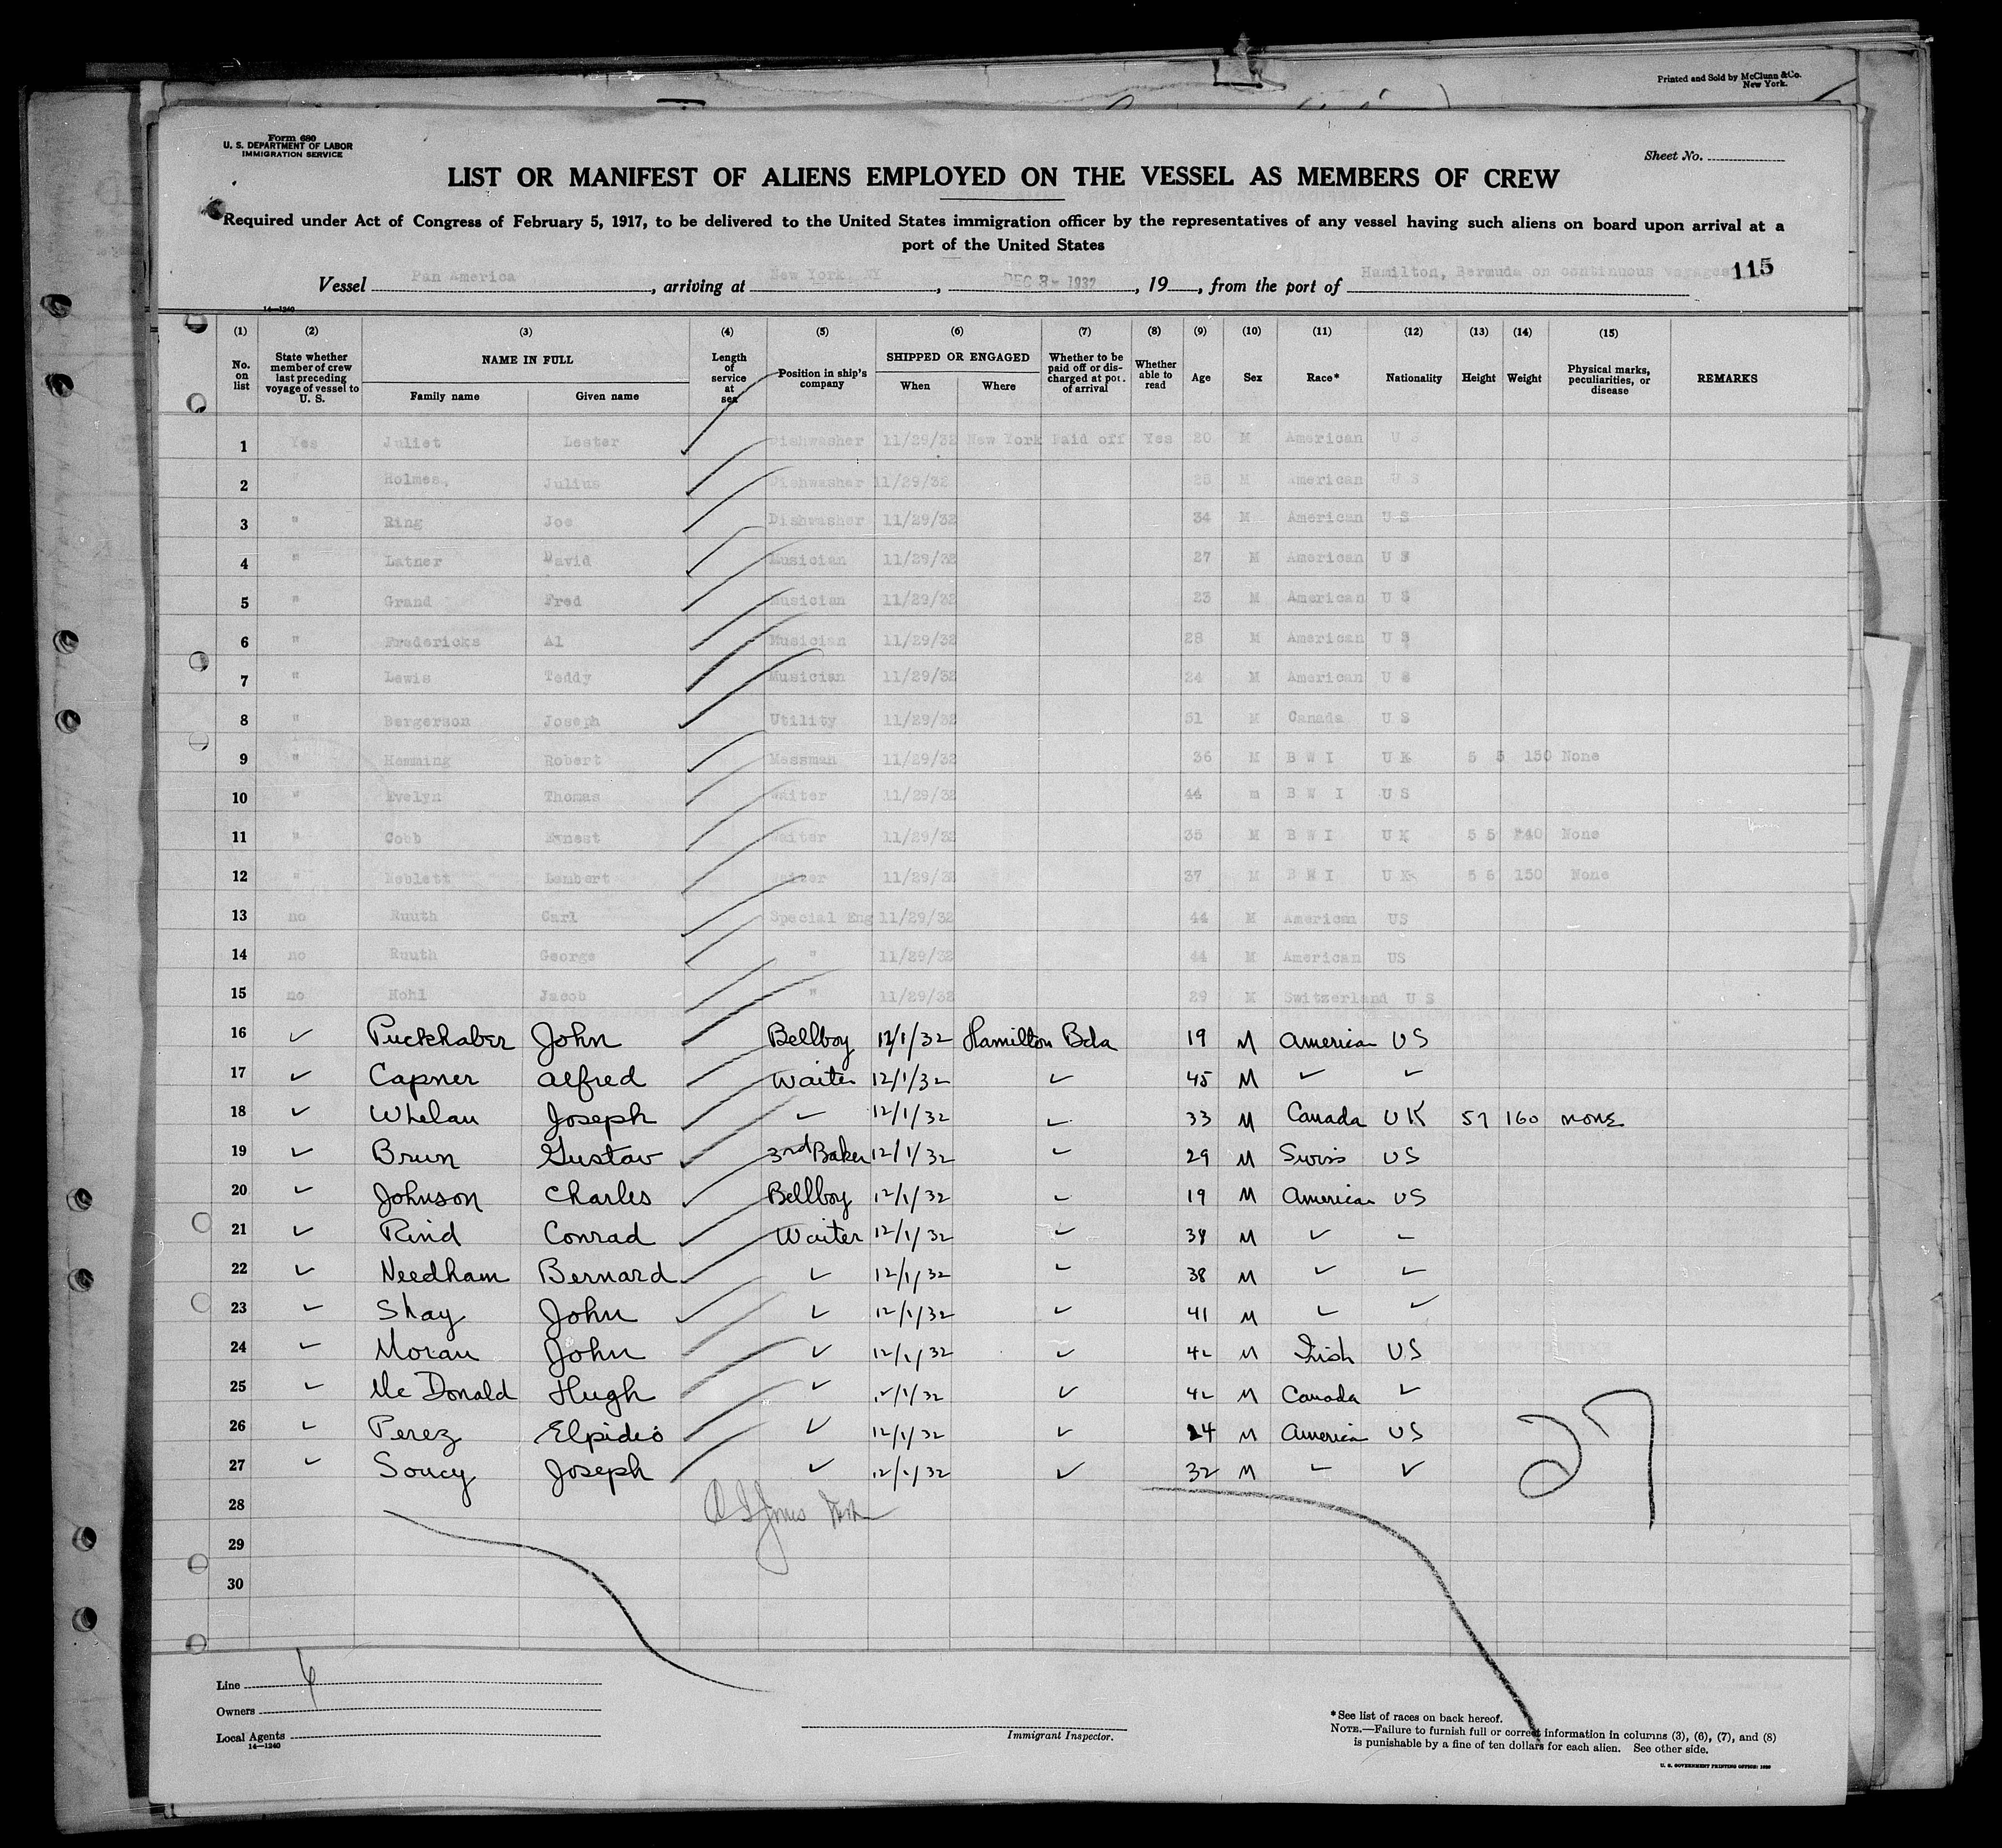 Printed and Sold by McClunn & Co.
New York.
Form 680
U. S. DEPARTMENT OF LABOR
IMMIGRATION SERVICE
Sheet No.
LIST OR MANIFEST OF ALIENS EMPLOYED ON THE VESSEL AS MEMBERS OF CREW
Required under Act of Congress of February 5, 1917, to be delivered to the United States immigration officer by the representatives of any vessel having such aliens on board upon arrival at a
port of the United States
Vessel Pan America, arriving at New York, NY, DEC 3- 1932, 19, from the port of Hamilton, Bermuda on continuous voyages 115
14—1240
(1) (2) (3) (4) (5) (6) (7) (8) (9) (10) (11) (12) (13) (14) (15)
No. on list State whether member of crew last preceding voyage of vessel to U. S. NAME IN FULL Family name Given name Length of service at sea Position in ship's company SHIPPED OR ENGAGED When Where Whether to be paid off or discharged at port of arrival Whether able to read Age Sex Race* Nationality Height Weight Physical marks, peculiarities, or disease REMARKS
1 Yes Juliet Lester Dishwasher 11/29/32 New York Paid off Yes 20 M American U S
2 Holmes, Julius Dishwasher 11/29/32 25 M American U S
3 " Ring Joe Dishwasher 11/29/32 34 M American U S
4 " Latner David Musician 11/29/32 27 M American U S
5 " Grand Fred Musician 11/29/32 23 M American U S
6 " Fredericks Al Musician 11/29/32 28 M American U S
7 " Lewis Teddy Musician 11/29/32 24 M American U S
8 " Bergerson Joseph Utility 11/29/32 31 M Canada U S
9 " Hemming Robert Messman 11/29/32 36 M B W I U K 5 5 150 None
10 " Evelyn Thomas Waiter 11/29/32 44 m B W I U S
11 " Cobb Ernest Waiter 11/29/32 35 M B W I U K 5 5 140 None
12 " Noblett Lambert Waiter 11/29/32 37 M B W I U K 5 6 150 None
13 no Ruuth Carl Special Eng 11/29/32 44 M American US
14 no Ruuth George " 11/29/32 44 M American US
15 no Hohl Jacob " 11/29/32 29 M Switzerland U S
16 ✓ Puckhaber John Bellboy 12/1/32 Hamilton Bda 19 M America US
17 ✓ Capner Alfred Waiter 12/1/32 ✓ 45 M ✓ ✓
18 ✓ Whelan Joseph ✓ 12/1/32 ✓ 33 M Canada UK 57 160 none
19 ✓ Brun Gustav 3rd Baker 12/1/32 ✓ 29 M Swiss US
20 ✓ Johnson Charles Bellboy 12/1/32 ✓ 19 M America US
21 ✓ Rind Conrad Waiter 12/1/32 ✓ 38 M ✓ ✓
22 ✓ Needham Bernard ✓ 12/1/32 ✓ 38 M ✓ ✓
23 ✓ Shay John ✓ 12/1/32 ✓ 41 M ✓ ✓
24 ✓ Moran John ✓ 12/1/32 ✓ 42 M Irish US
25 ✓ Mc Donald Hugh ✓ 12/1/32 ✓ 42 M Canada ✓
26 ✓ Perez Elpidio ✓ 12/1/32 ✓ 24 M America US
27 ✓ Soucy Joseph ✓ 12/1/32 ✓ 32 M ✓ ✓
27
28
29
30
Line
Owners
Local Agents
14—1240
Immigrant Inspector.
*See list of races on back hereof.
NOTE.—Failure to furnish full or correct information in columns (3), (6), (7), and (8)
is punishable by a fine of ten dollars for each alien. See other side.
U. S. GOVERNMENT PRINTING OFFICE: 1930